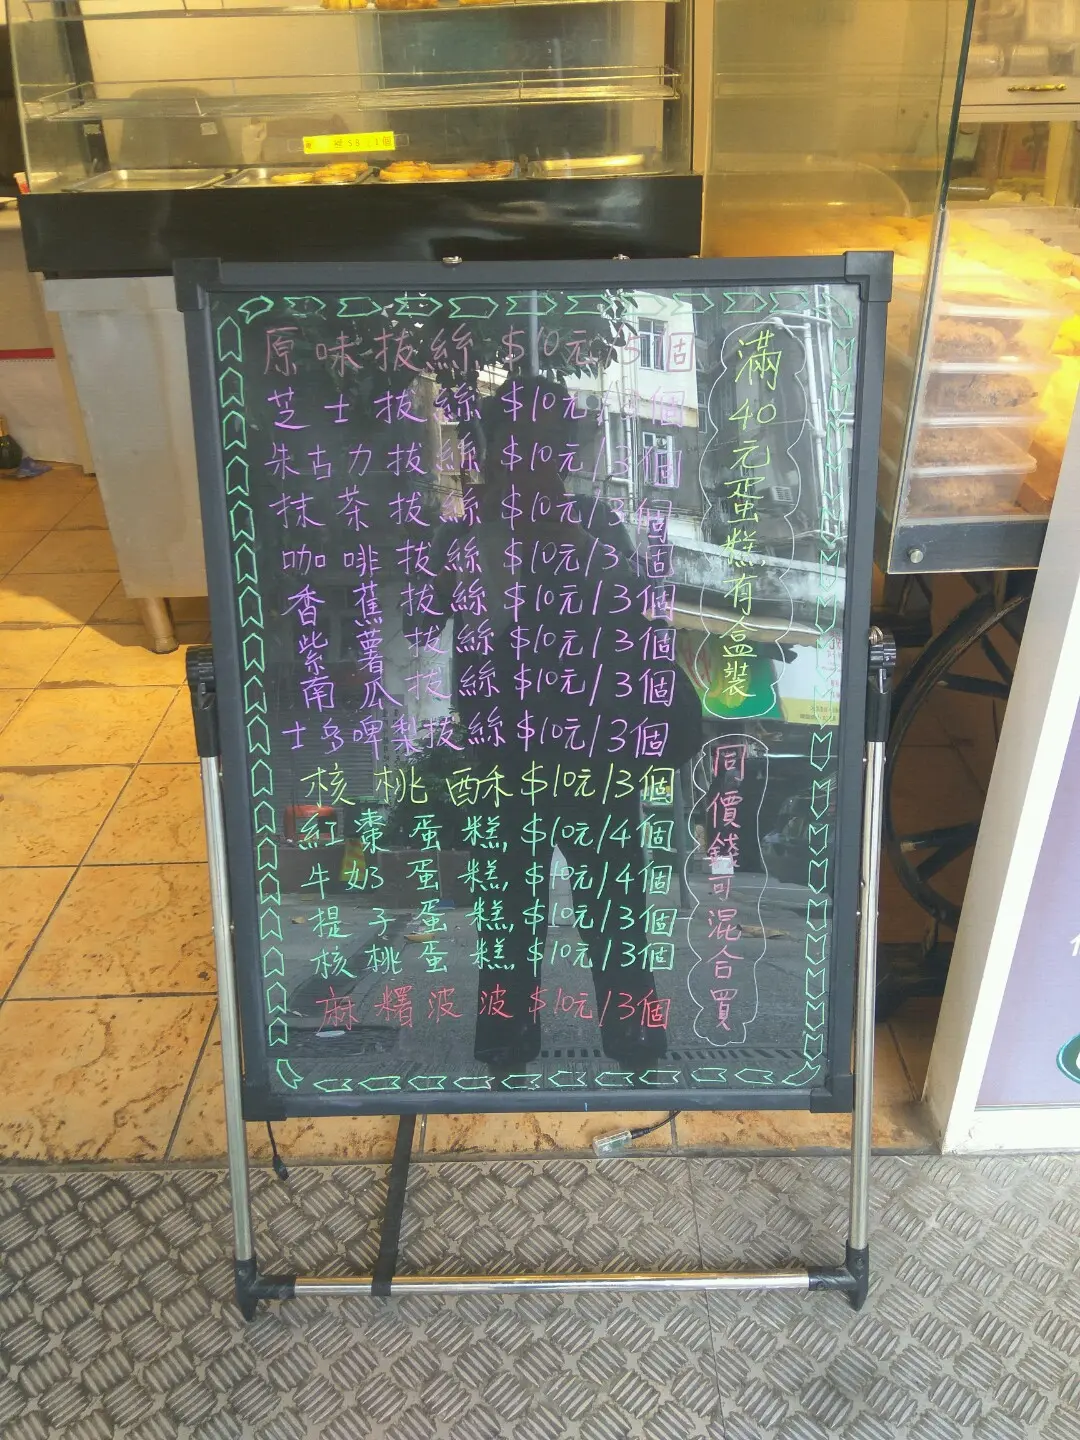 原味拔絲$10元/5個
芝士拔絲$10元/ 個
朱古力拔絲$10元/3個
抹茶拔絲$10元/3個
咖啡拔絲$10元/3個
香蕉拔絲$10元/3個
紫薯拔絲$10元/3個
南瓜拔絲$10元/3個
士多啤梨拔絲$10元/3個
核桃酥$10元/3個
紅棗蛋糕,$10元/4個
牛奶蛋糕,$10元/4個
提子蛋糕,$10元/3個
核桃蛋糕$10元/3個
麻糬波波$10元/3個
滿40元蛋糕有盒裝
同價錢可混合買